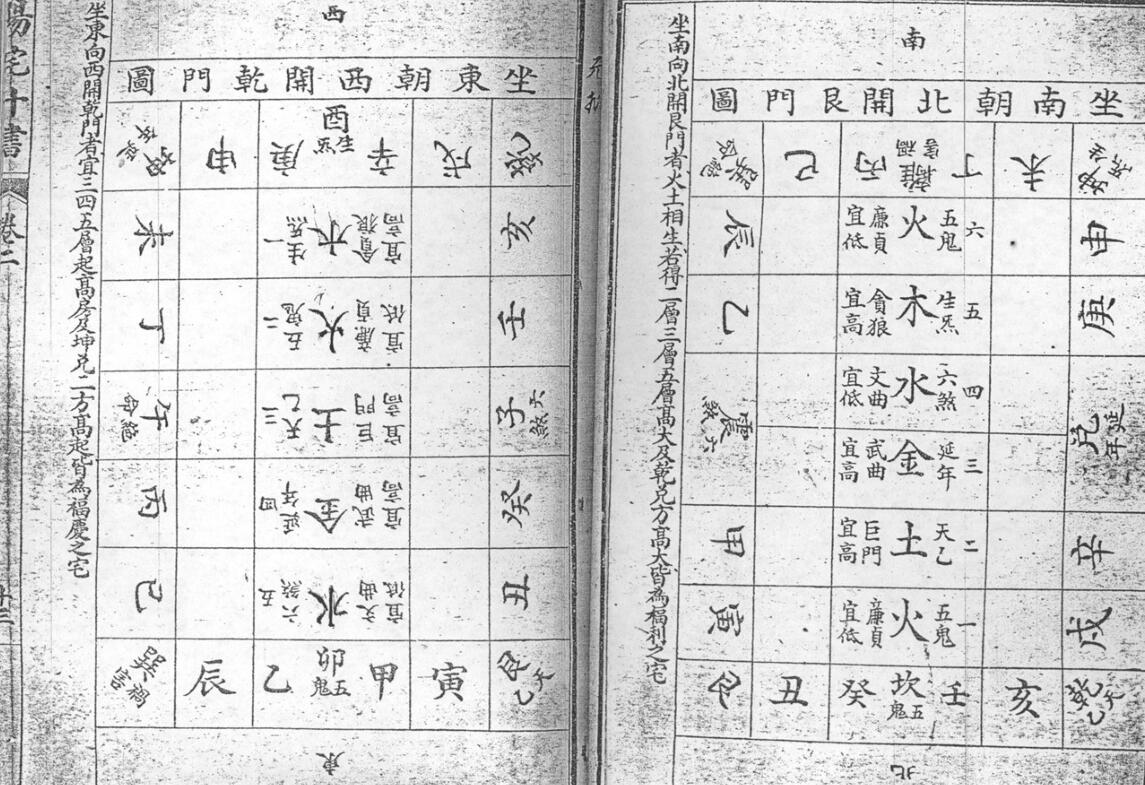 南
坐南朝北開艮門圖
巽 巳 丙 離 禍害 丁 未 坤 生炁
辰 宜低 廉貞 火 五鬼 六 申
乙 宜高 貪狼 木 生炁 五 庚
震 六煞 宜低 文曲 水 六煞 四 兌 延年
宜高 武曲 金 延年 三
甲 宜高 巨門 土 天乙 二 辛
寅 宜低 廉貞 火 五鬼 一 戌
艮 丑 癸 坎 五鬼 壬 亥 乾 天乙
北
坐南向北開艮門者火土相生若得二層三層五層高大及乾兌方高大皆為福利之宅
西
坐東朝西開乾門圖
坤 延年 申 庚 酉 生炁 辛 戌 乾
未 一 生炁 木 貪狼 宜高 亥
丁 二 五鬼 火 廉貞 宜低 壬
午 絕命 三 天乙 土 巨門 宜高 子 六煞
丙 四 延年 金 武曲 宜高 癸
巳 五 六煞 水 文曲 宜低 丑
巽 禍害 辰 乙 卯 五鬼 甲 寅 艮 天乙
東
坐東向西開乾門者宜三四五層起高房及坤兌二方高起皆為福慶之宅
陽宅十書
卷二